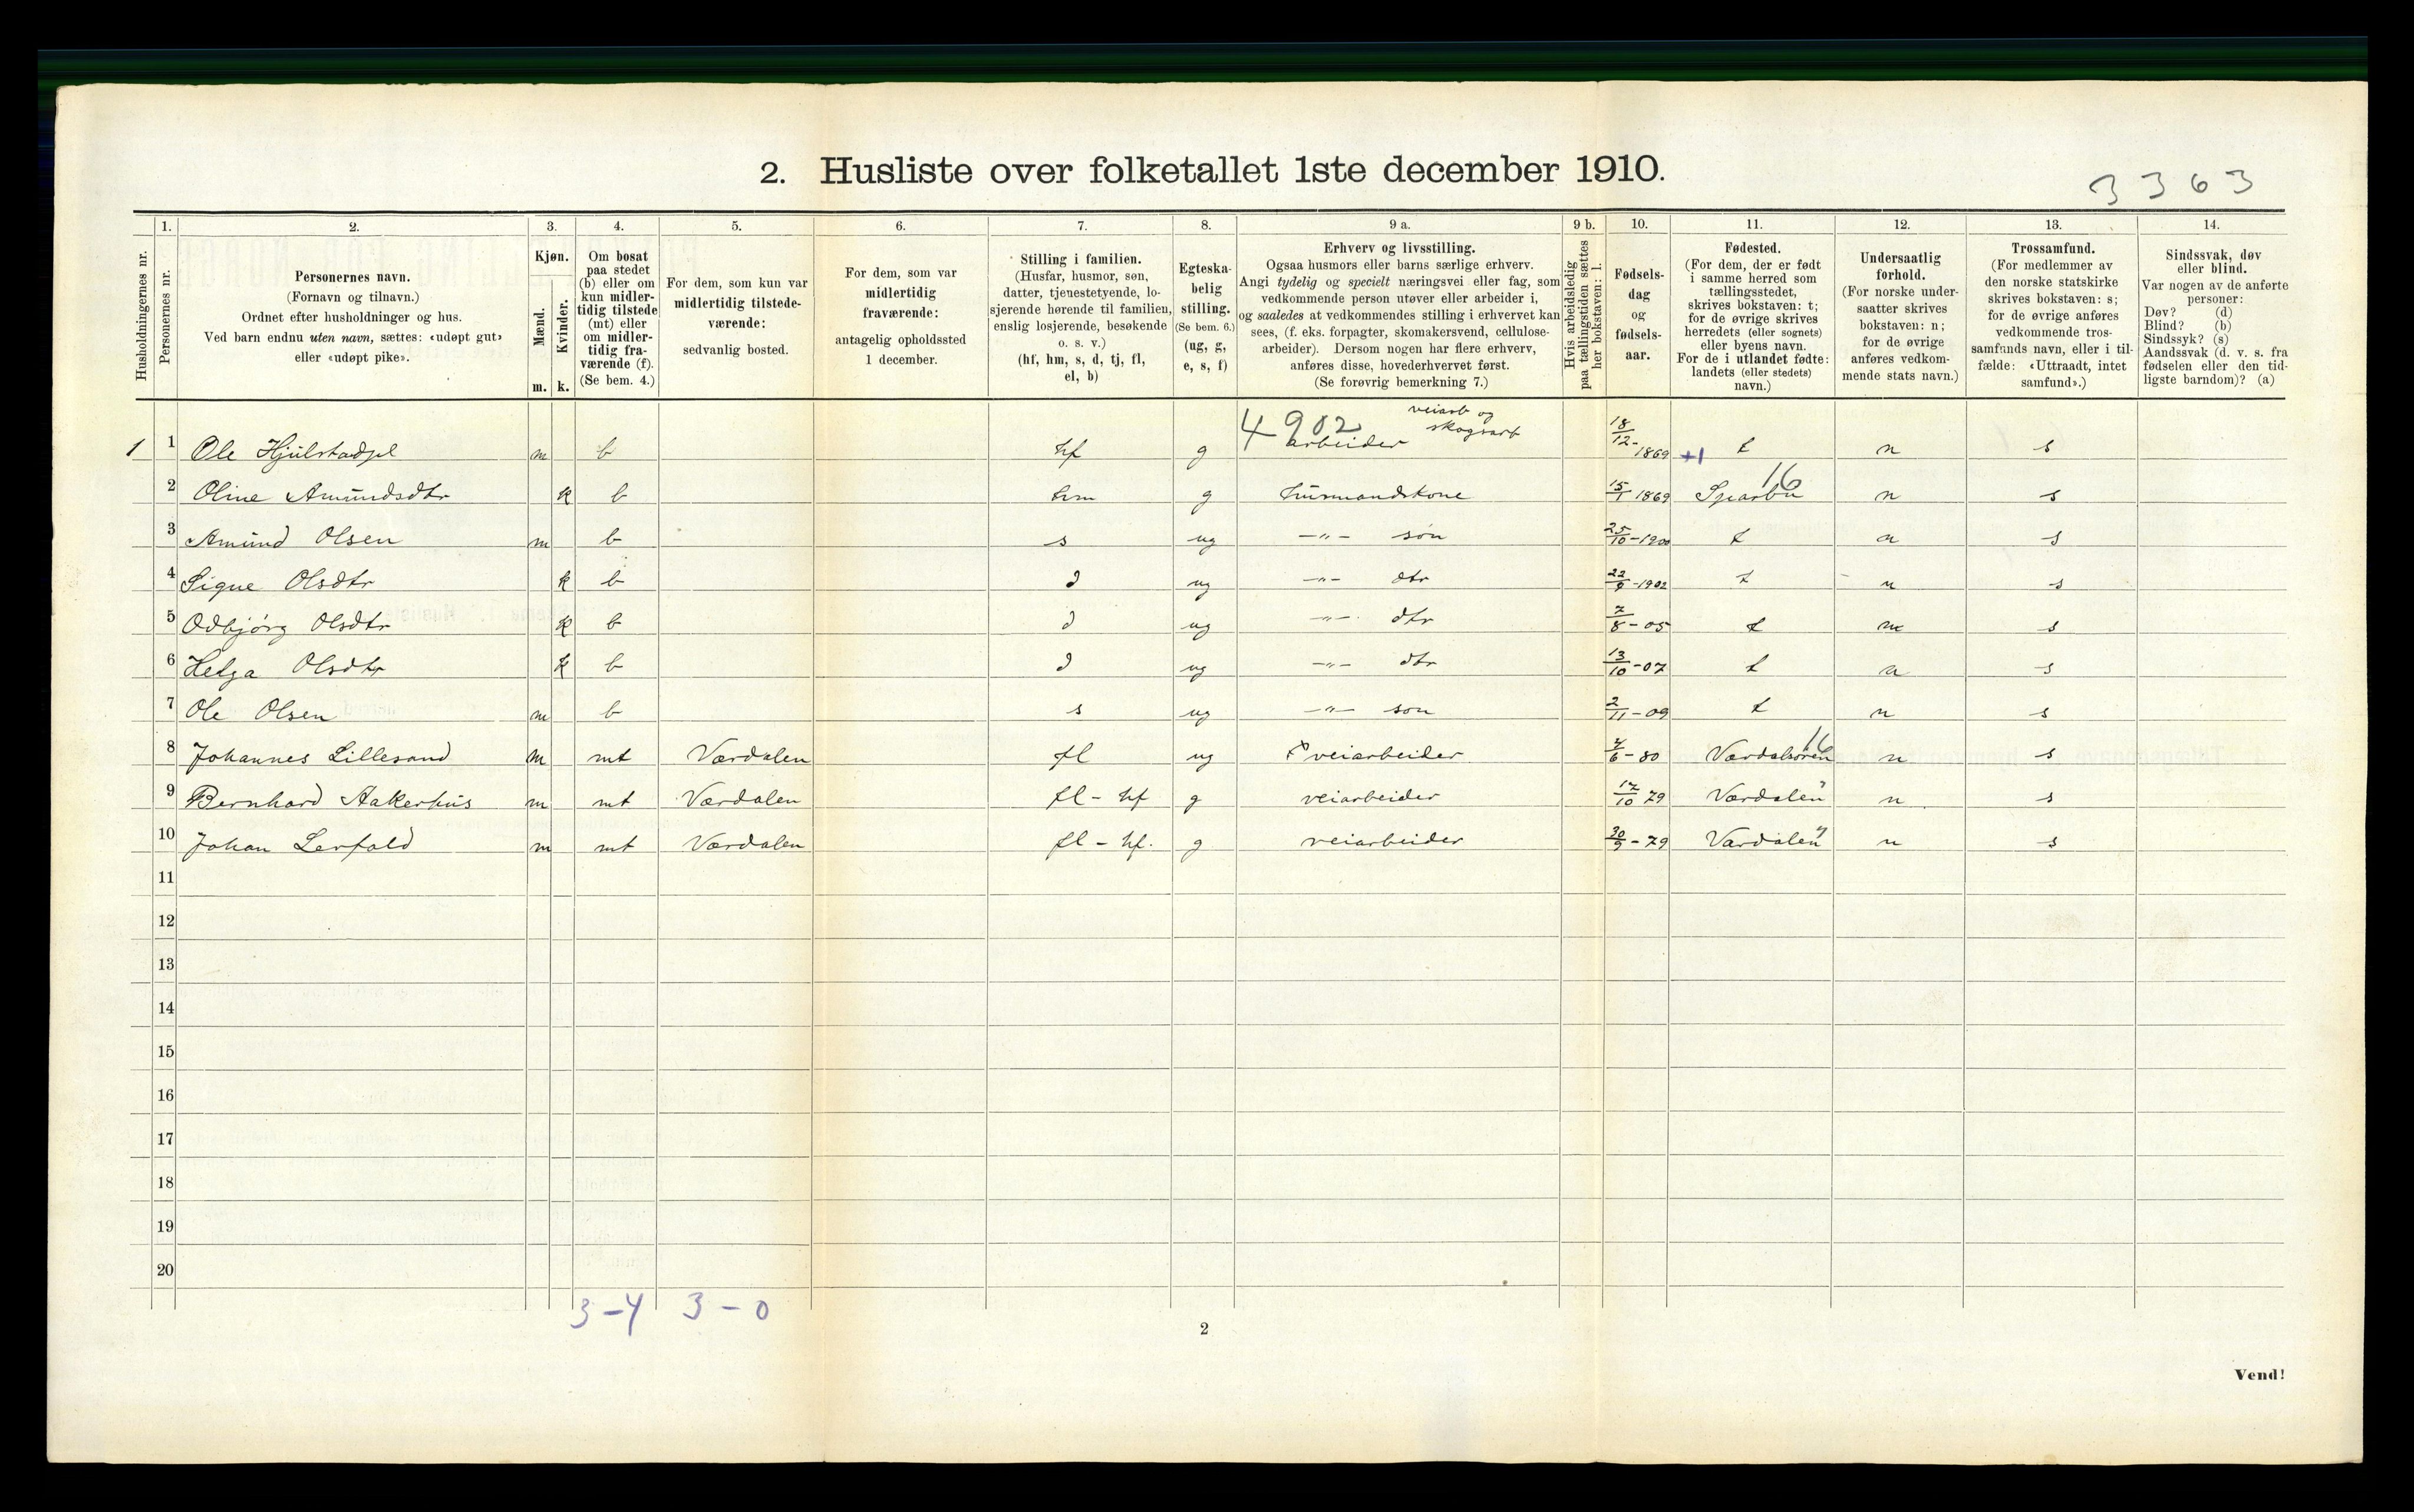 2. Husliste over folketallet 1ste december 1910.
3 3 6 3
Husholdningernes nr.
1.
Personernes nr.
2.
Personernes navn.
(Fornavn og tilnavn.)
Ordnet efter husholdninger og hus.
Ved barn endnu uten navn, sættes: «udøpt gut»
eller «udøpt pike».
3.
Kjøn.
Mænd.
Kvinder.
m. k.
4.
Om bosat
paa stedet
(b) eller om
kun midler-
tidig tilstede
(mt) eller
om midler-
tidig fra-
værende (f).
(Se bem. 4.)
5.
For dem, som kun var
midlertidig tilstede-
værende:
sedvanlig bosted.
6.
For dem, som var
midlertidig
fraværende:
antagelig opholdssted
1 december.
7.
Stilling i familien.
(Husfar, husmor, søn,
datter, tjenestetyende, lo-
sjerende hørende til familien,
enslig losjerende, besøkende
o. s. v.)
(hf, hm, s, d, tj, fl,
el, b)
8.
Egteska-
belig
stilling.
(Se bem. 6.)
(ug, g,
e, s, f)
9 a.
Erhverv og livsstilling.
Ogsaa husmors eller barns særlige erhverv.
Angi tydelig og specielt næringsvei eller fag, som
vedkommende person utøver eller arbeider i,
og saaledes at vedkommendes stilling i erhvervet kan
sees, (f. eks. forpagter, skomakersvend, cellulose-
arbeider). Dersom nogen har flere erhverv,
anføres disse, hovederhvervet først.
(Se forøvrig bemerkning 7.)
9 b.
Hvis arbeidsledig
paa tællingstiden sættes
her bokstaven: l.
10.
Fødsels-
dag
og
fødsels-
aar.
11.
Fødested.
(For dem, der er født
i samme herred som
tællingsstedet,
skrives bokstaven: t;
for de øvrige skrives
herredets (eller sognets)
eller byens navn.
For de i utlandet fødte:
landets (eller stedets)
navn.)
12.
Undersaatlig
forhold.
(For norske under-
saatter skrives
bokstaven: n;
for de øvrige
anføres vedkom-
mende stats navn.)
13.
Trossamfund.
(For medlemmer av
den norske statskirke
skrives bokstaven: s;
for de øvrige anføres
vedkommende tros-
samfunds navn, eller i til-
fælde: «Uttraadt, intet
samfund».)
14.
Sindssvak, døv
eller blind.
Var nogen av de anførte
personer:
Døv? (d)
Blind? (b)
Sindssyk? (s)
Aandssvak (d. v. s. fra
fødselen eller den tid-
ligste barndom)? (a)
4902 veiarb og
skogsarb
1 1 Ole Hjulstadpl m b hf g arbeider 18/12-1869 +1 t n s
2 Oline Amundsdtr k b hm g husmandskone 15/1 1869 Sparbu 16 n s
3 Amund Olsen m b s ug -"- søn 25/10-1900 t n s
4 Signe Olsdtr k b d ug -"- dtr 22/9-1902 t n s
5 Odbjørg Olsdtr k b d ug -"- dtr 7/8-05 t n s
6 Helga Olsdtr k b d ug -"- dtr 13/10-07 t n s
7 Ole Olsen m b s ug -"- søn 2/11-09 t n s
8 Johannes Lillesand m mt Værdalen fl ug veiarbeider 4/6-80 Værdalsøren 16 n s
9 Bernhard Aakerhus m mt Værdalen fl - hf g veiarbeider 17/10 79 Værdalen " n s
10 Johan Lerfald m mt Værdalen fl - hf. g veiarbeider 30/9-79 Værdalen " n s
11
12
13
14
15
16
17
18
19
20
3-4 3-0
2
Vend!